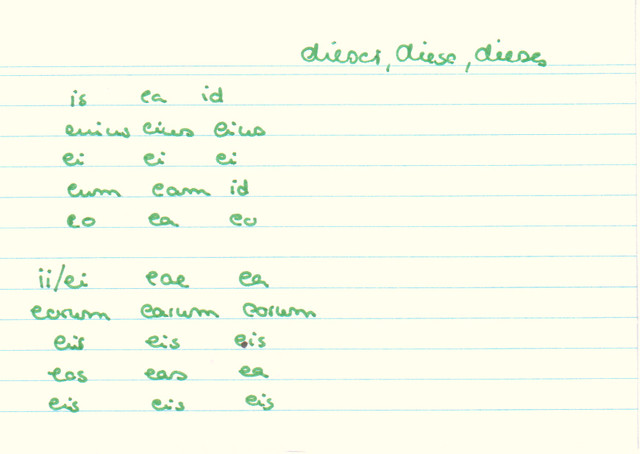 dieser, diese, dieses
is ea id
euius eius eius
ei ei ei
eum eam id
eo ea eo
ii/ei eae ea
eorum earum eorum
eis eis eis
eos eas ea
eis eis eis